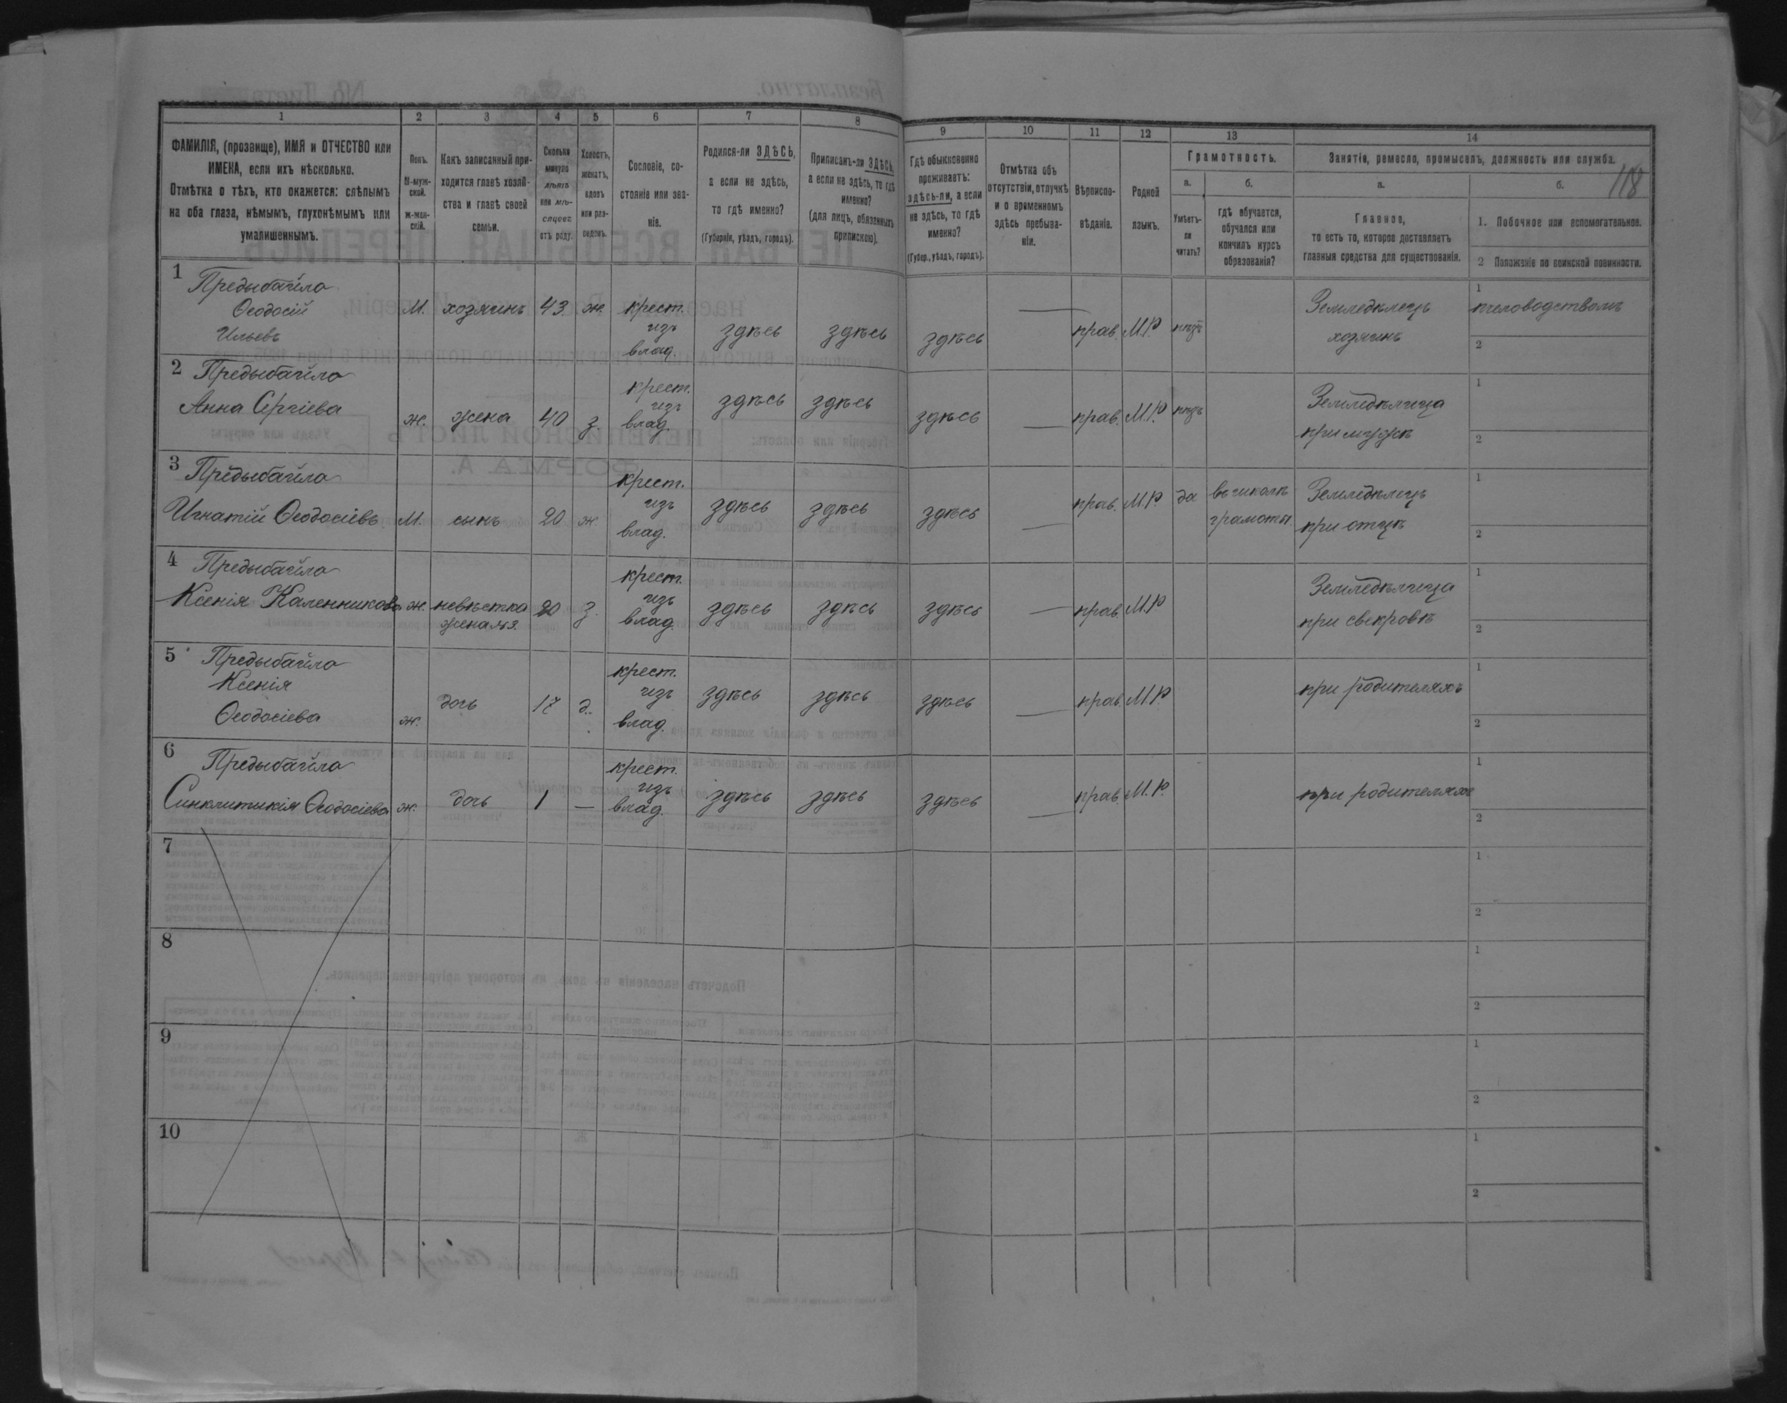 118
1 2 3 4 5 6 7 8 9 10 11 12 13 14
ФАМИЛІЯ, (прозвище), ИМЯ и ОТЧЕСТВО или
ИМЕНА, если ихъ нѣсколько.
Отмѣтка о тѣхъ, кто окажется: слѣпымъ
на оба глаза, нѣмымъ, глухонѣмымъ или
умалишеннымъ.
Полъ.
М-муж-
ской.
ж-жен-
скій.
Какъ записанный при-
ходится главѣ хозяй-
ства и главѣ своей
семьи.
Сколько
минуло
лѣтъ
или мѣ-
сяцевъ
отъ роду.
Холостъ,
женатъ,
вдовъ
или раз-
веденъ.
Сословіе, со-
стояніе или зва-
ніе.
Родился-ли ЗДѢСЬ,
а если не здѣсь,
то гдѣ именно?
(Губернія, уѣздъ, городъ).
Приписанъ-ли ЗДѢСЬ,
а если не здѣсь, то гдѣ
именно?
(для лицъ, обязанныхъ
припискою).
Гдѣ обыкновенно
проживаетъ:
здѣсь-ли, а если
не здѣсь, то гдѣ
именно?
(Губер., уѣздъ, городъ).
Отмѣтка объ
отсутствіи, отлучкѣ
и о временномъ
здѣсь пребыва-
ніи.
Вѣроиспо-
вѣданіе.
Родной
языкъ.
Грамотность.
а.
Умѣетъ-
ли
читать?
б.
гдѣ обучается,
обучался или
кончилъ курсъ
образованія?
Занятіе, ремесло, промыселъ, должность или служба.
а.
Главное,
то есть то, которое доставляетъ
главныя средства для существованія.
б.
1. Побочное или вспомогательное.
2 Положеніе по воинской повинности.
1 Предыбайло
Ѳеодосій
Ильевъ
М. хозяинъ 43 ж. крест.
изъ
влад.
здѣсь здѣсь здѣсь — прав. М.Р. нѣтъ
Земледѣлецъ
хозяинъ
1 пчеловодствомъ
2
2 Предыбайло
Анна Сергіева
ж. жена 40 з. крест.
изъ
влад.
здѣсь здѣсь здѣсь — прав. М.Р. нѣтъ
Земледѣлица
при мужѣ
1
2
3 Предыбайло
Игнатій Ѳеодосіевъ
М. сынъ 20 ж. крест.
изъ
влад.
здѣсь здѣсь здѣсь — прав. М.Р. да
въ школѣ
грамоты
Земледѣлецъ
при отцѣ
1
2
4 Предыбайло
Ксенія Каленникова
ж. невѣстка
жена № 3
20 з. крест.
изъ
влад.
здѣсь здѣсь здѣсь — прав. М.Р.
Земледѣлица
при свекровѣ
1
2
5 Предыбайло
Ксенія
Ѳеодосіева
ж. дочь 17 д. крест.
изъ
влад.
здѣсь здѣсь здѣсь — прав. М.Р.
при родителяхъ
1
2
6 Предыбайло
Синклитикія Ѳеодосіева
ж. дочь 1 — крест.
изъ
влад.
здѣсь здѣсь здѣсь — прав. М.Р.
при родителяхъ
1
2
7
1
2
8
1
2
9
1
2
10
1
2